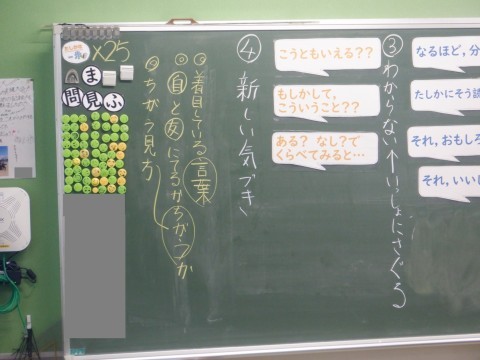 なるほど,分
たしかにそう説
それ,おもしろ
それ,いいし
③わからない↑いっしょにさぐろ
こうともいえる??
もしかして,
こういうこと??
ある? なし?で
くらべてみると…
④新しい気づき
◎着目している言葉
◎自と友にてるからちがうか
◎ちがう見方
×25
ま
問見ふ